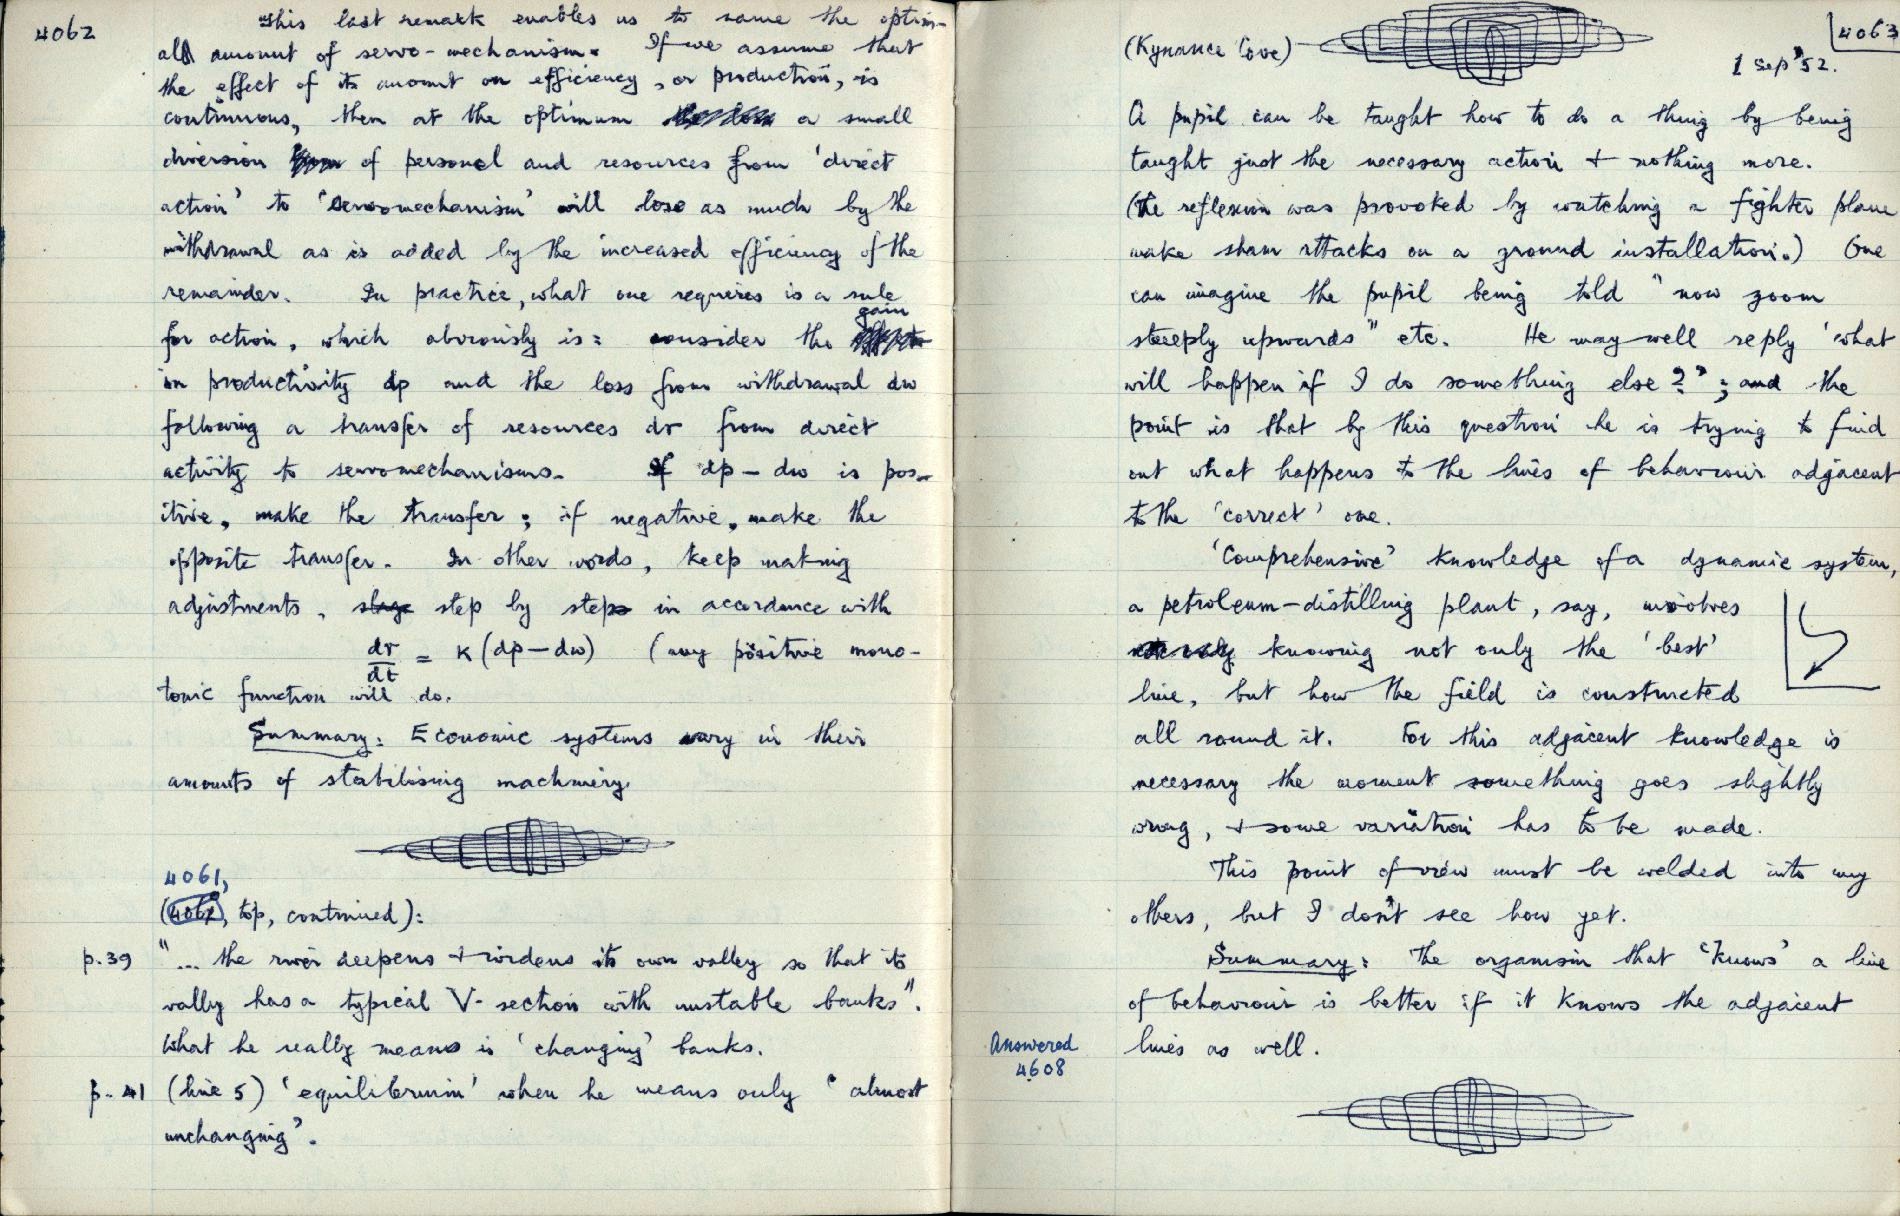 4062
This last remark enables us to some the optim-
all amount of servo-mechanism. If we assume that
the effect of its amount on efficiency, or production, is
continuous, then at the optimum a small
diversion of personel and resources from 'direct
action' to 'servomechanism' will lose as much by the
withdrawal as is added by the increased efficiency of the
remainder. In practice, what one requires is a rule
gain
for action, which obviously is: consider the
in productivity dp and the loss from withdrawal dw
following a transfer of resources dr from direct
activity to servomechanisms. If dp – dw is pos-
itive, make the transfer; if negative, make the
opposite transfer. In other words, keep making
adjustments, stage step by steps in accordance with
dr/dt = K (dp – dw) (any positive mono-
tonic function will do.
Summary: Economic systems vary in their
amounts of stabilising machinery.
4061,
(4062, top, continued):
p.39 "... the river deepens + widens its own valley so that its
vally has a typical V-section with unstable banks".
What he really means is 'changing' banks.
p. 41 (line 5) 'equilibrium' when he means only 'almost
unchanging'.
4063
(Kynance Cove)
1 Sep '52.
A pupil can be taught how to do a thing by being
taught just the necessary action + nothing more.
(the reflexion was provoked by watching a fighter plane
make sham attacks on a ground installation.) One
can imagine the pupil being told "now zoom
steeply upwards" etc. He may well reply 'what
will happen if I do something else?'; and the
point is that by this question he is trying to find
out what happens to the lines of behaviour adjacent
to the 'correct' one.
'Comprehensive' knowledge of a dynamic system,
a petroleum-distilling plant, say, involves
knowing not only the 'best'
line, but how the field is constructed
all round it. For this adjacent knowledge is
necessary the moment something goes slightly
wrong, + some variation has to be made.
This point of view must be welded into my
others, but I don't see how yet.
Summary: The organism that 'knows' a line
of behaviour is better if it knows the adjacent
lines as well.
Answered
4608